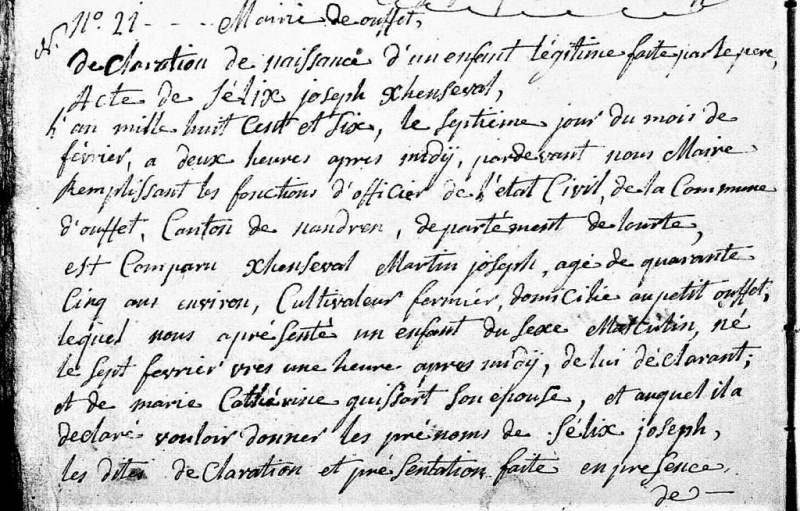 N.º 21 - - - - Mairie de ouffet,
declaration de naissance d'un enfant légitime faite par le pere,
Acte de félix joseph xhenseval,
L'an mille huit Cent et Six, le septième jour du mois de
février, a deux heures apres midÿ, pardevant nous Maire
Remplissant les fonctions d'officier de l'état Civil, de la Commune
d'ouffet, Canton de nandren, département de lourte,
est Comparu xhenseval Martin joseph, agé de quarante
Cinq ans environ, Cultivateur fermier, domicilié au petit ouffet,
lequel nous a présenté un enfant du sexe Masculin, né
le sept fevrier vres une heure apres midÿ, de lui déclarant;
et de marie Cathérine quissart son épouse, et auquel il a
declaré vouloir donner les prénoms de félix joseph,
les dites declaration et présentation faite en presence
de —